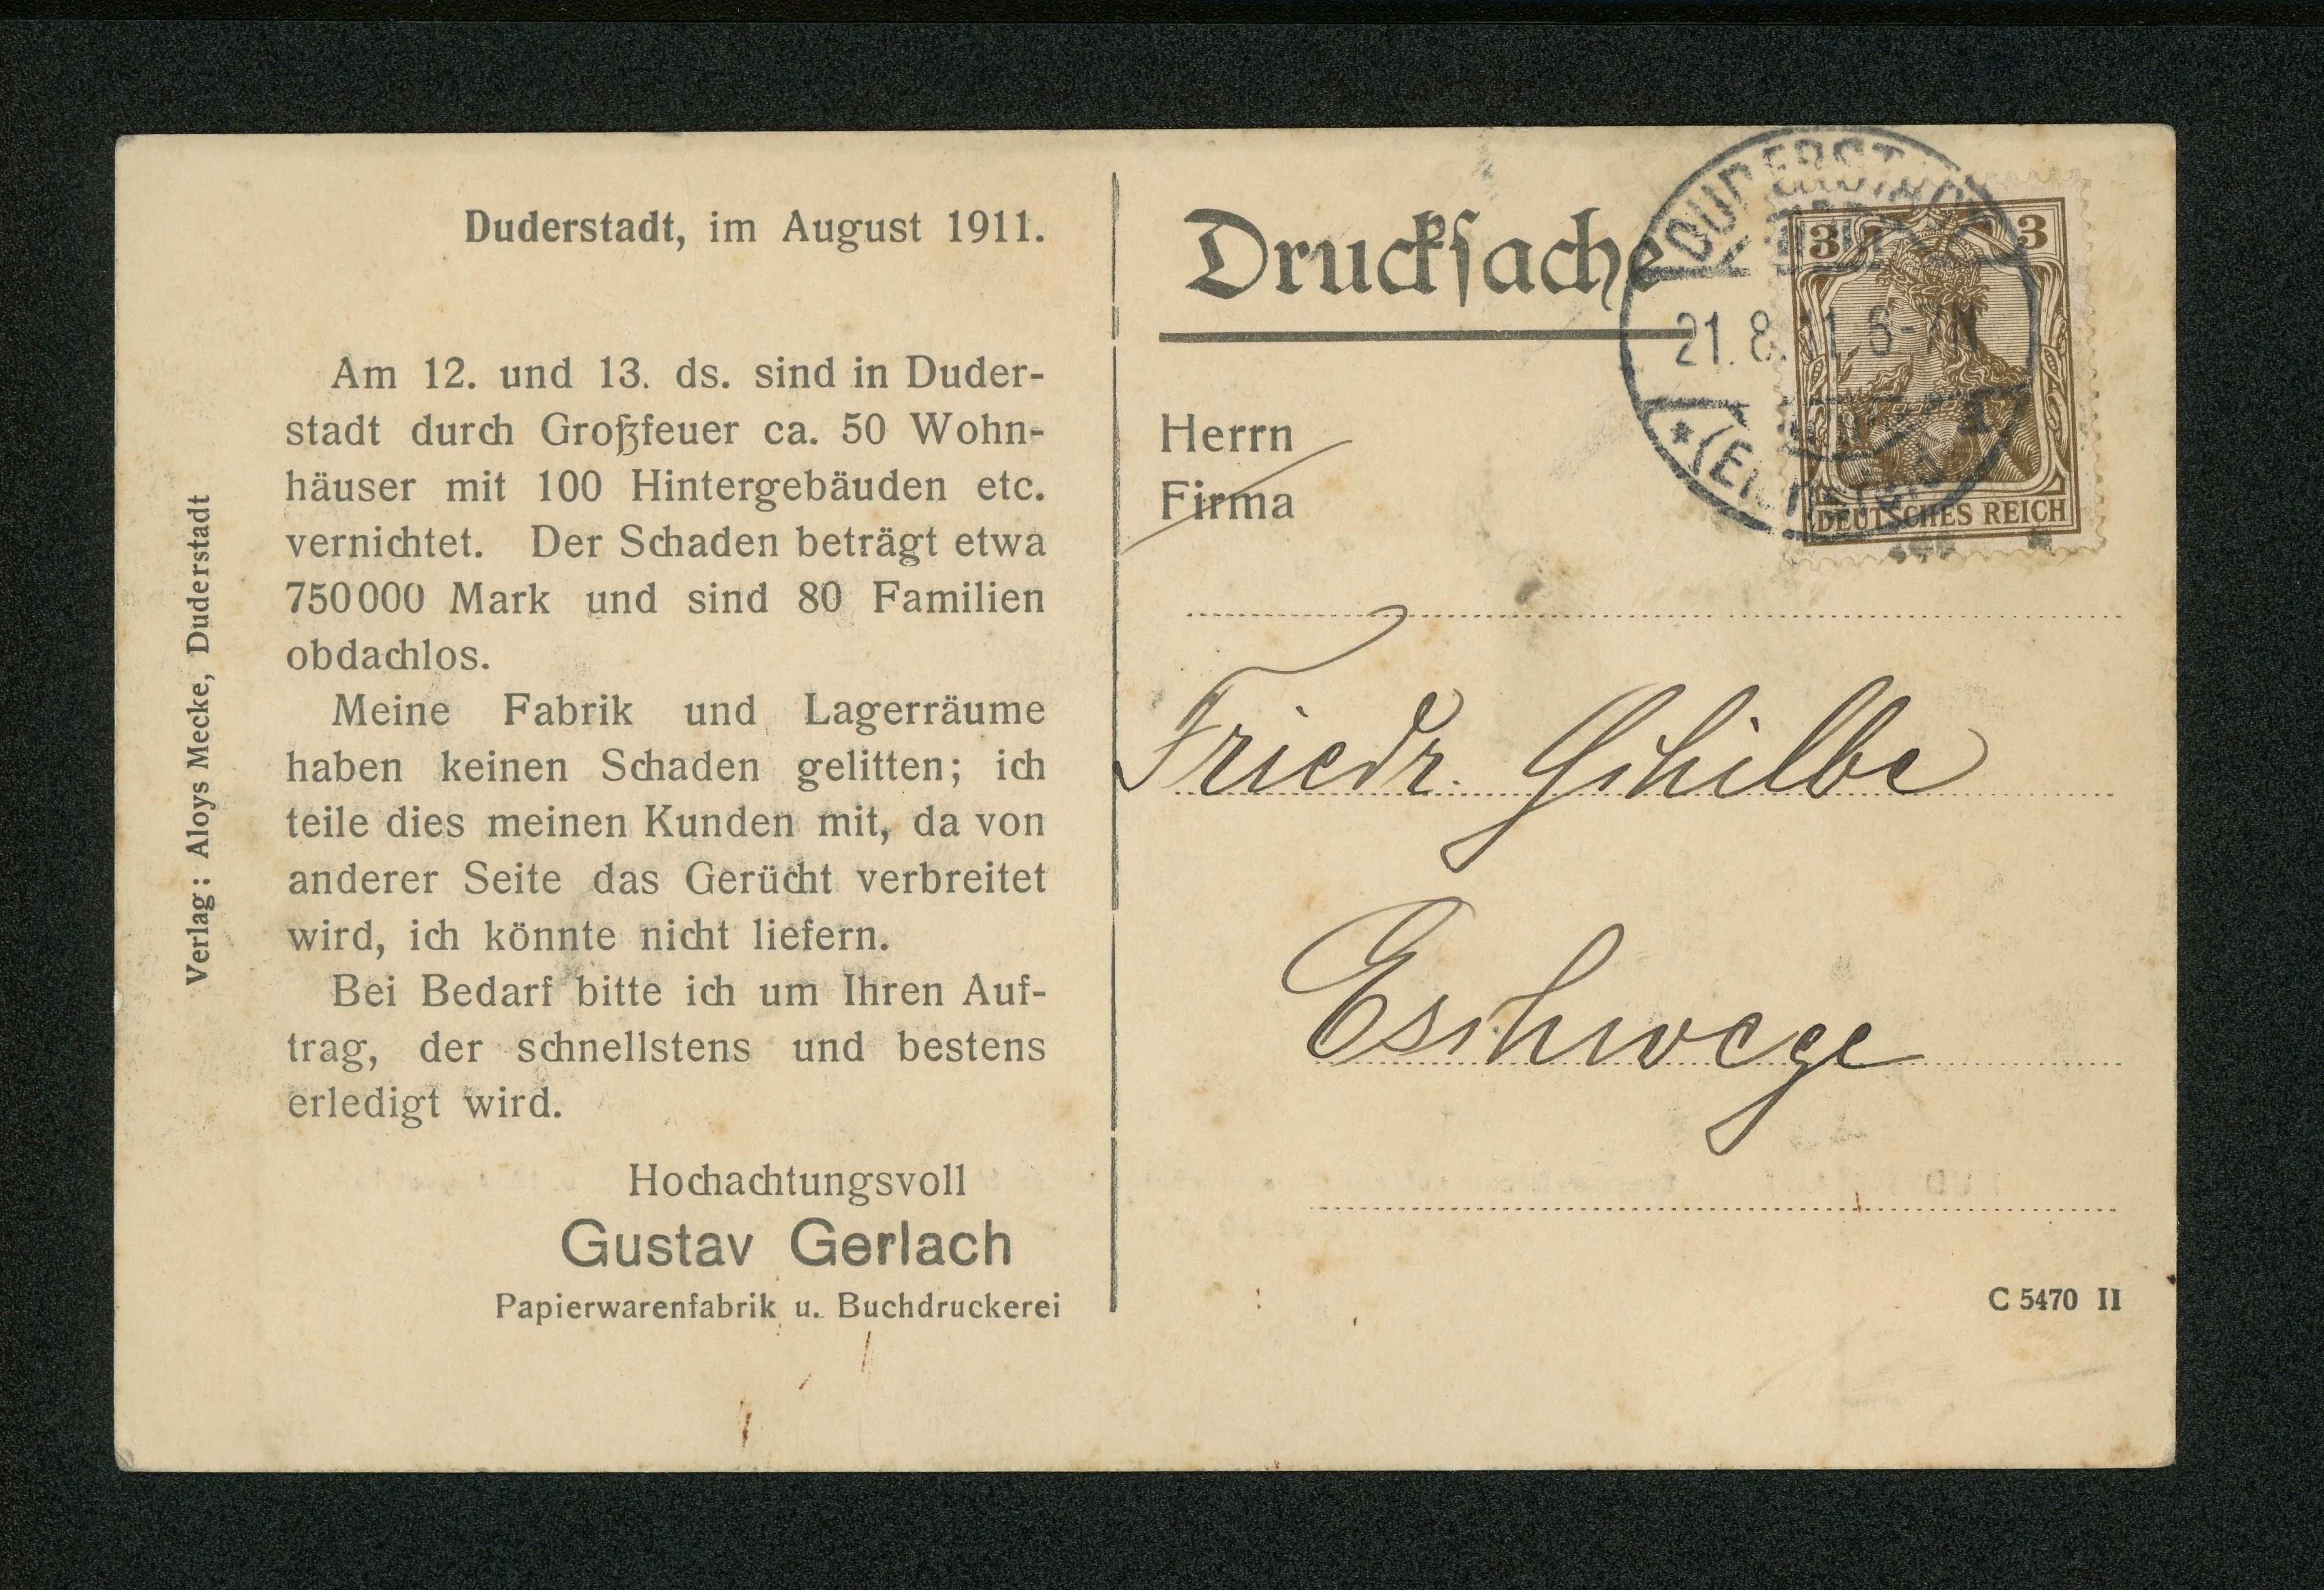 Duderstadt, im August 1911.
Am 12. und 13. ds. sind in Duder-
stadt durch Großfeuer ca. 50 Wohn-
häuser mit 100 Hintergebäuden etc.
vernichtet. Der Schaden beträgt etwa
750000 Mark und sind 80 Familien
obdachlos.
Meine Fabrik und Lagerräume
haben keinen Schaden gelitten; ich
teile dies meinen Kunden mit, da von
anderer Seite das Gerücht verbreitet
wird, ich könnte nicht liefern.
Bei Bedarf bitte ich um Ihren Auf-
trag, der schnellstens und bestens
erledigt wird.
Hochachtungsvoll
Gustav Gerlach
Papierwarenfabrik u. Buchdruckerei
Verlag: Aloys Mecke, Duderstadt
Druckſache
DUDERSTADT
21.8.11.6-7N
3 3
DEUTSCHES REICH
Herrn
Firma
Friedr.
Eschwege
C 5470 II